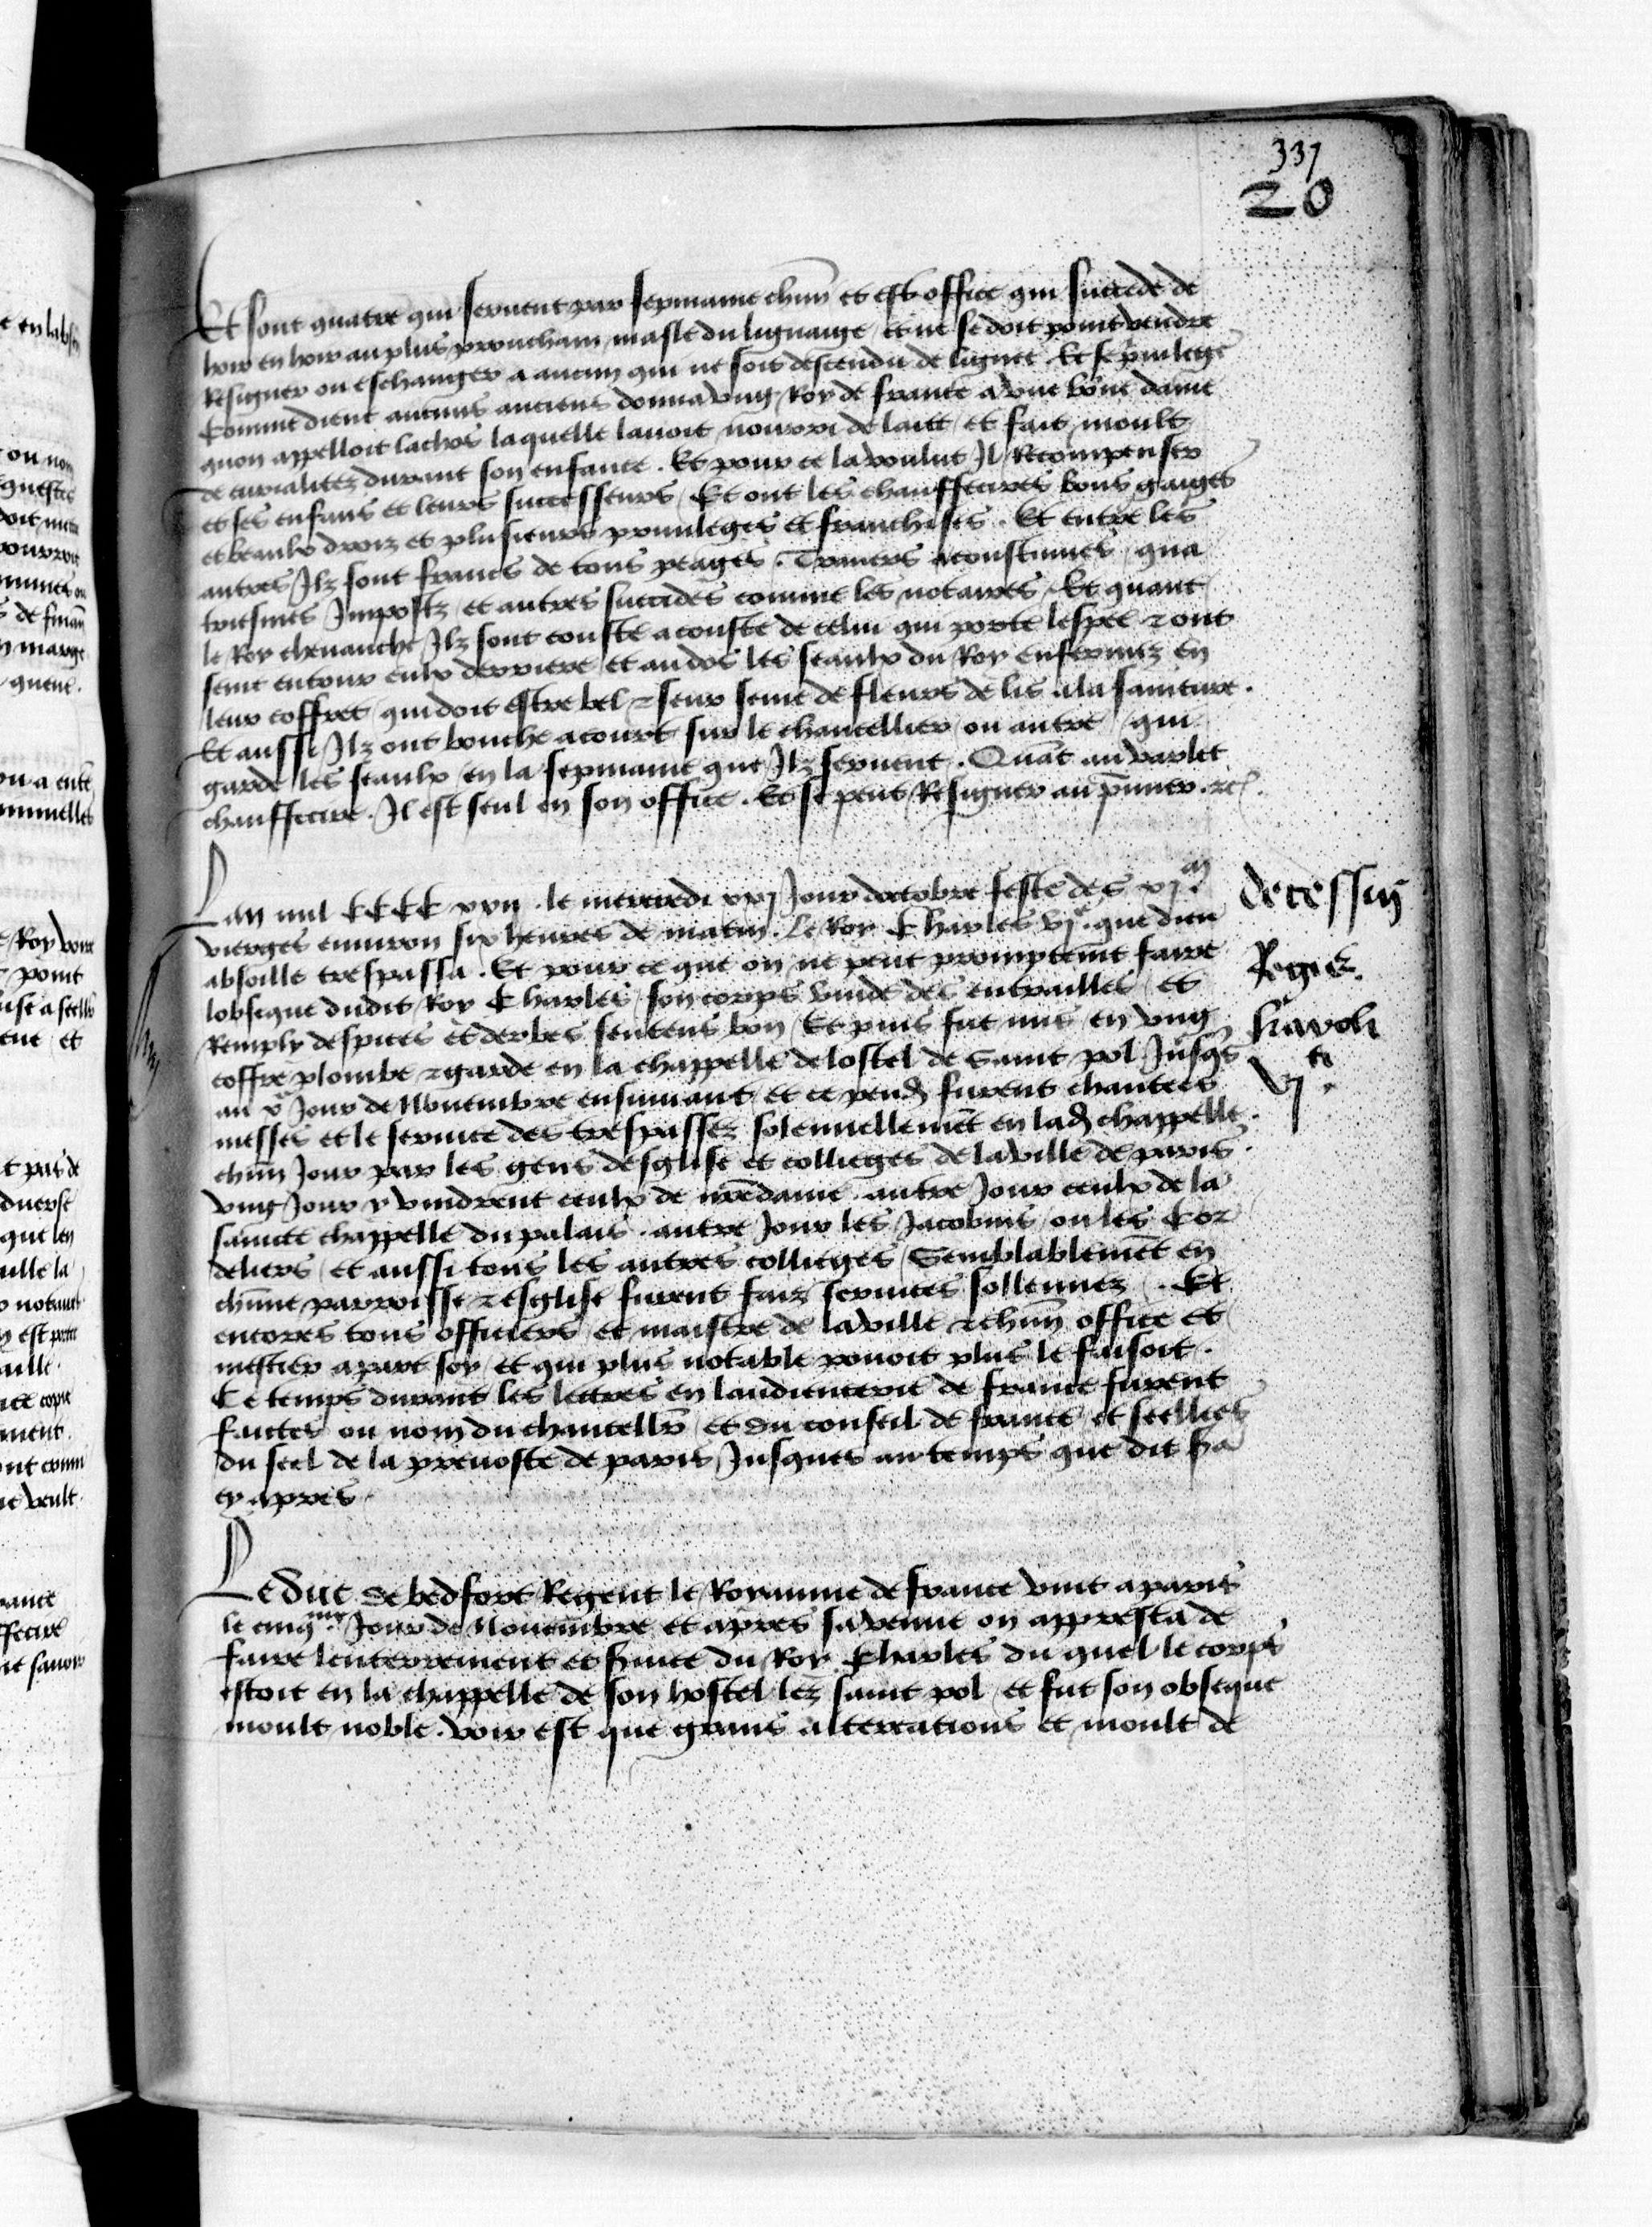 337
20
Et sont quatre qui servent par sepmaine chūn et est office qui succede de
hoir en hoir au plus prouchain masle du lignaige / et ne se doit point vendre
Resigner ou eschanger a aucun qui ne soit descendu de lignee . Et se privilege
Comme dient aucuns anciens donna ung Roy de france a une bōne dame
quon appelloit laquelle lavoit nourri de lait / et fait moult
de curialitez durant son enfance . Et pour ce la voulut Il Recompenser
et ses enfans et leurs successeurs / Et ont les chauffecires bons gaiges
et beaulx droiz et plusieurs privileges et franchises . Et entre les
autres Ilz sont francs de tous peages . Travers acoustumes / qua
triesmes Impostz / et autres succides comme les notaires / Et quant
le Roy chevauche Ilz sont couste a couste de celui qui porte / ont
seint entour eulx derriere / et au dos les seaulx du Roy enfermez en
leur coffret / qui doit estre bel & seur seme de fleurs de lis a la sainture .
Et aussi Ilz ont bouche a court sur le chancellier / ou autre / qui
garde les seaulx / en la sepmaine que Ilz servent . Quāt au varlet
chauffecire . Il est seul en son office . Et se peut Resigner au p̄mier . &c.
Lan mil CCCC xxii . le mercredi xxj Jour doctobre feste des xjm
vierges environ six heures de matin . Le Roy Charles vje . que dieu
absoille trespassa . Et pour ce que on ne peut promptemēt faire
lobseque dudit Roy Charles / son corps vuide des entrailles / et
Remply despices et derbes sentens bon / Et puis fut mis en ung
coffre plombe & garde en la chappelle de lostel de Saint pol Jusqs
au ve Jour de Novembre ensuivant / et ce pend furent chantees
messes et le service des trespassez solennellemēt en lad chappelle .
chūn Jour par les gens desglise et collieges de la ville de paris .
ung Jour y vindrent ceulx de nr̄edame . autre Jour ceulx de la
saincte chappelle du palais . autre Jour les Jacobins / ou les Cor
deliers / et aussi tous les autres collieges / Semblablemēt en
chūne parroisse & esglise furent faiz services sollennez / . Et
encores tous officiers / et maistre de la ville & chūn office et
mestier a part soy / et qui plus notable povoit plus le faisoit .
Ce temps durant les lettres en laudiencerie de france furent
faictes ou nom du chancellr / et du conseil de france / et seellees
du seel de la prevoste de paris / Jusques au temps que dit sa
cy apres
decessus
Regis
Karoli
vjti .
Le duc de bedfort Regent le Royaume de france vint a paris
le cinqme . Jour de Novembre et apres sa venue on appresta de
faire lenterrement et service du Roy Charles du quel le corps
estoit en la chappelle de son hostel lez saint pol / et fut son obseque
moult noble . voir est que grans altercations et moult de